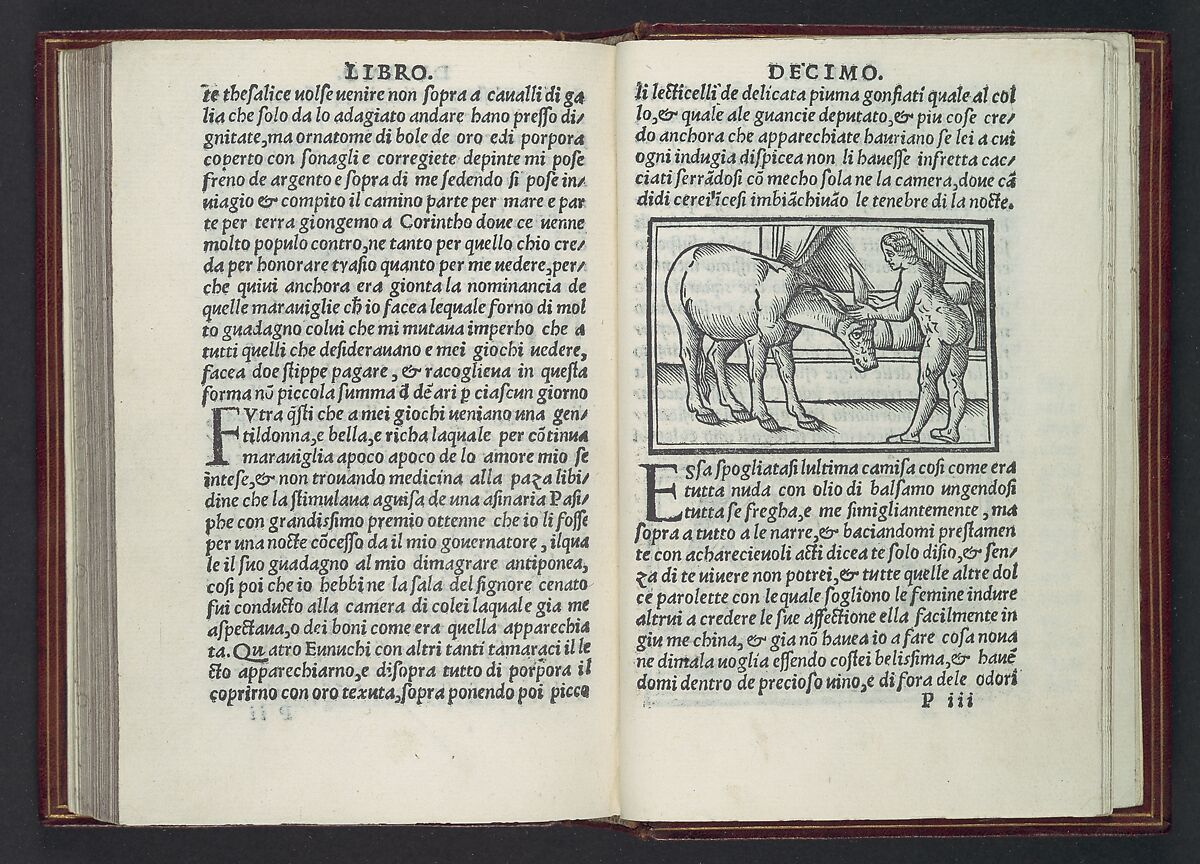 LIBRO.
te thesalice volse uenire non sopra a caualli di ga
lia che solo da lo adagiato andare hano presso di/
gnitate, ma ornatome di bole de oro edi porpora
coperto con sonagli e corregiete depinte mi pose
freno de argento e sopra di me sedendo si pose in/
uiagio & compito il camino parte per mare e par
te per terra giongemo a Corintho doue ce uenne
molto populo contro, ne tanto per quello chio cre/
da per honorare tyasio quanto per me uedere, per/
che quiui anchora era gionta la nominancia de
quelle marauiglie ch̃ io facea lequale forno di mol
to guadagno colui che mi mutaua imperho che a
tutti quelli che desiderauano e mei giochi uedere,
facea doe stippe pagare, & racoglieua in questa
forma nõ piccola summa d̄ dẽari p ciascun giorno
FVtra q̃sti che a mei giochi ueniano una gen/
tildonna, e bella, e richa laquale per cõtinua
marauiglia apoco apoco de lo amore mio se
intese, & non trouando medicina alla paza libi/
dine che la stimulaua aguisa de una asinaria Pasi/
phe con grandissimo premio ottenne che io li fosse
per una nocte cõcesso da il mio gouernatore, ilqua
le il suo guadagno al mio dimagrare antiponea,
cosi poi che io hebbi ne la sala del signore cenato
fui conducto alla camera di colei laquale gia me
aspectaua, o dei boni come era quella apparechia
ta. Quatro Eunuchi con altri tanti tamaraci il le
cto apparechiarno, e disopra tutto di porpora il
coprirno con oro texuta, sopra ponendo poi picco
DECIMO.
li lecticelli de delicata piuma gonfiati quale al col
lo, & quale ale guancie deputato, & piu cose cre/
do anchora che apparechiate hauriano se lei a cui
ogni indugia dispicea non li hauesse infretta cac/
ciati serrãdosi cõ mecho sola ne la camera, doue cã
didi cerei icesi imbiãchiuão le tenebre di la nocte.
ESsa spogliatasi lultima camisa cosi come era
tutta nuda con olio di balsamo ungendosi
tutta se fregha, e me simigliantemente, ma
sopra a tutto a le narre, & baciandomi prestamen
te con acharecieuoli acti dicea te solo disio, & sen/
za di te uiuere non potrei, & tutte quelle altre dol
ce parolette con lequale sogliono le femine indure
altrui a credere le sue affectione ella facilmente in
giu me china, & gia nõ hauea io a fare cosa noua
ne dimala uoglia essendo costei belissima, & hauẽ
domi dentro de precioso uino, e di fora dele odori
P iii